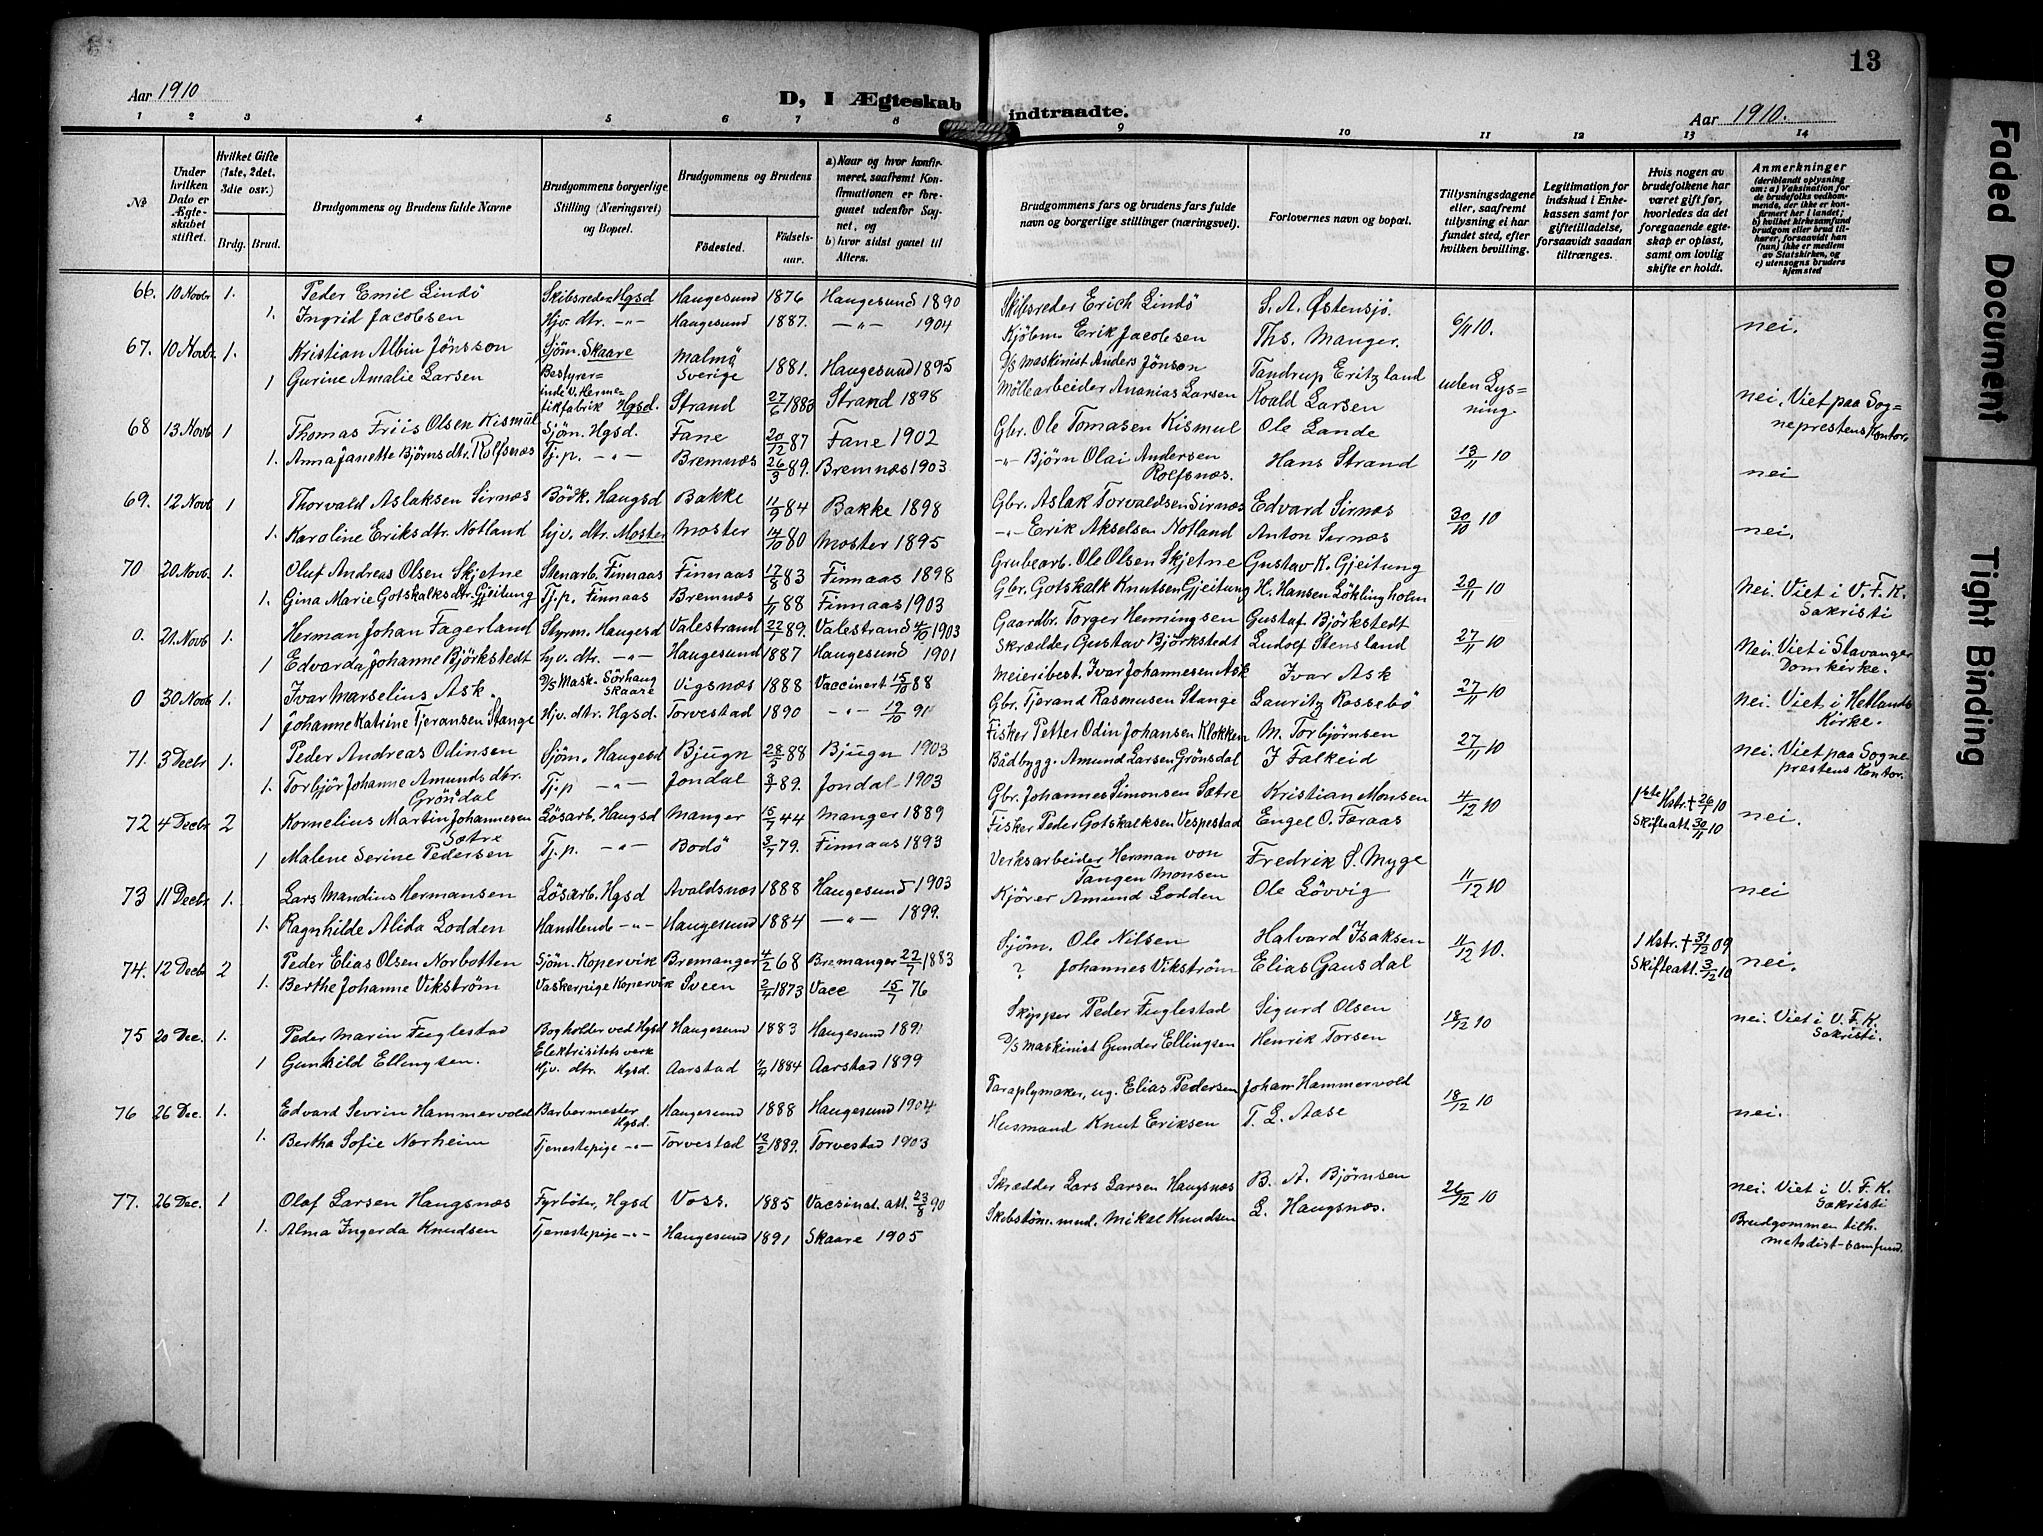 13
Aar 1910
D, I Ægteskab indtraadte.
Aar 1910.
1 2 3 4 5 6 7 8 9 10 11 12 13 14
No
Under hvilken Dato er Ægteskabet stiftet.
Hvilket Gifte (1ste, 2det, 3die osv.)
Brdg. Brud.
Brudgommens og Brudens fulde Navne
Brudgommens borgerlige Stilling (Næringsvei) og Bopæl.
Brudgommens og Brudens
Födested.
Födselsaar.
a) Naar og hvor konfirmeret, saafremt Konfirmationen er foregaaet udenfor Sognet, og
b) hvor sidst gaaet til Alters.
Brudgommens fars og brudens fars fulde navn og borgerlige stillinger (næringsvei).
Forlovernes navn og bopæl.
Tillysningsdagene eller, saafremt tillysning ei har fundet sted, efter hvilken bevilling.
Legitimation for indskud i Enkekassen samt for giftetilladelse, forsaavidt saadan tiltrænges.
Hvis nogen av brudefolkene har været gift før, hvorledes da det foregaaende egteskap er opløst, samt om lovlig skifte er holdt.
Anmerkninger
(deriblandt oplysning om: a) Vaksination for de brudefolks vedkommende, der ikke er konfirmert her i landet; b) hvilket kirkesamfund brudgom eller brud tilhører, forsaavidt han (hun) ikke er medlem av Statskirken, og c) utensogns bruders hjemsted
66. 10 Novbr 1. Peder Emil Lindö Skibsreder Hgsd Haugesund 1876 Haugesund 1890 Skibsreder Erich Lindö S. A. Østensjö. 6/11 10. nei.
1. Ingrid Jacobsen Hjv. dtr. -"- Haugesund 1887. -"- 1904 Kjöbm. Erik Jacobsen Ths. Manger.
67. 10 Novbr. 1. Kristian Albin Jönsson Sjöm. Skaare Malmö Sverige 1881. Haugesund 1895 D/S Maskinist Anders Jönson Tandrup Eritzland uden Lysning. nei, Viet paa Sogneprestens Kontor.
1 Gurine Amalie Larsen Bestyrerinde v. Hermetikfabrik Hgsd. Strand 27/6 1883 Strand 1898 Möllearbeider Ananias Larsen Roald Larsen
68 13 Novb 1 Thomas Friis Olsen Kismul Sjöm. Hgsd. Fane 20/12 87 Fane 1902 Gbr. Ole Tomasen Kismul Ole Lande 13/11 10 nei
1. Anna Janette Björnsdtr. Rolfsnæs Tj.p. -"- Bremnæs 26/3 89. Bremnæs 1903. -"- Bjørn Olai Andersen Rolfsnæs. Hans Strand
69. 12 Novb 1 Thorvald Aslaksen Sirnæs Bödk. Haugsd Bakke 11/9 84 Bakke 1898 Gbr. Aslak Torvaldsen Sirnæs Edvard Sirnæs 30/10 10 nei.
1. Karoline Eriksdtr. Notland hjv. dtr. Moster Moster 14/10 80 Moster 1895 -"- Erik Akselsen Notland Anton Sernæs
70 20 Novb. 1. Oluf Andreas Olsen Skjetne Stenarb. Finnaas Finnaas 17/8 83 Finnaas 1898 Grubearb. Ole Olsen Skjetne Gustav K. Gjeitung 20/11 10 Nei. Viet i V. F. K. Sakristi
1. Gina Marie Gotskalksdtr. Gjeitung Tj.p. Finnaas Bremnæs 1/11 88 Finnaas 1903 Gbr. Gotskalk Knutsen Gjeitung H. Hansen Löklingholm
0. 21. Novb 1. Herman Johan Fagerland Styrm. Haugesd Valestrand 22/1 89. Valestrand 4/10 1903 Gaardbr. Torger Henningsen Gustaf Björkstedt 27/11 10 Nei. Viet i Stavanger Domkirke.
1 Edvarda Johanne Björkstedt hjv. dtr. -"- Haugesund 1887 Haugesund 1901 Skrædder Gustav Björkstedt Ludolf Stensland
0 30 Novb 1. Ivar Marselius Ask. D/S Mask. Sörhaug Skaare Vigsnæs 1888 Vaccinert 15/10 88 Meieribest. Ivar Johannesen Ask Ivar Ask 27/11 10 Nei. Viet i Hetlands Kirke.
1 Johanne Katrine Tjeransen Stange Hjv. dtr. Hgsd. Torvestad 1890 -"- 19/10 91 Gbr. Tjerand Rasmusen Stange Lauritz Rossebö
71. 3 Decbr 1. Peder Andreas Odinsen Sjöm. Haugesd Bjugn 28/5 88 Bjugn 1903 Fisker Petter Odin Johansen Klokken M. Torbjörnsen 27/11 10 nei. Viet paa Sogneprestens Kontor.
1. Torbjör Johanne Amundsdtr. Gröndal Tj.p -"- Jondal 89. Jondal 1903 Bådbygg. Amund Larsen Grönsdal J Falkeid
72 4 Decbr 2 Kornelius Martin Johannesen Sætre Lösarb. Haugsd Manger 15/7 44 Manger 1889 Gbr. Johannes Simonsen Sætre Kristian Monsen 4/12 10 1ste Hstr. + 26/1 10 nei.
1 Malene Serine Pedersen Tj.p. -"- Bodö 3/7 79. Finnaas 1893 Fisker Peder Gotskalksen Vespestad Engel O. Færaas Skifteatt. 30/11 10
73 11 Decbr 1. Lars Mandius Hermansen Lösarb. Hgsd Avaldsnæs 1888 Haugesund 1903 Verksarbeider Herman von Tangen Monsen Fredrik S. Myge 11/12 10 nei
1. Ragnhilde Alida Lodden Handlende -"- Haugesund 1884 -"- 1899. Kjörer Amund Lodden Ole Lövvig
74. 12 Decbr 2 Peder Elias Olsen Norbotten Sjöm. Kopervik Bremanger 4/2 68 Bremanger 22/7 1883 Sjöm. Ole Nilsen Halvard Isaksen 11/12 10. 1 Hstr. + 31/12 09 nei.
1. Berthe Johanne Vikström Vaskerpige Kopervik Sveen 2/4 1873 Vacc 15/7 76 ? Johannes Vikström Elias Gausdal Skifteatt. 3/12 10
75 20 Dec. 1. Peder Marin Fuglestad Bogholder ved Hgsd Elektrisitetsverk Haugesund 1883 Haugesund 1891 Skipper Peder Fuglestad Sigurd Olsen 18/12 10 nei. Viet i V. F. K. Sakristi.
1 Gunhild Ellengsen. Hjv. dtr. Hgsd. Aarstad 1884 Aarstad 1899 D/S Maskinist Gunder Ellingsen Henrik Torsen
76 26 Dec. 1. Edvard Sevrin Hammervold Barbermester Hgsd. Haugesund 1888 Haugesund 1904 Paraplymaker, ug. Elias Pedersen Johan Hammervold 18/12 10 nei.
1. Bertha Sofie Norheim Tjenestepige -"- Torvestad 12/2 1889. Torvestad 1903 Husmand Knut Eriksen T. L. Aase
77. 26 Dec. 1 Olaf Larsen Haugsnæs Fyrböter, Hgsd Voss. 1885 Vacsinat. att. 23/8 90 Skrædder Lars Larsen Haugsnæs B. A. Bjørnsen 26/12 10 nei. Viet i V. F. K. Sakristi
1. Alma Ingerda Knudsen Tjenestepige -"- Haugesund 1891 Skaare 1905 Skibstöm. mnd. Mikal Knudsen L. Haugsnæs. Brudgommen tilh. metodist-samfund.
Faded Document
Tight Binding